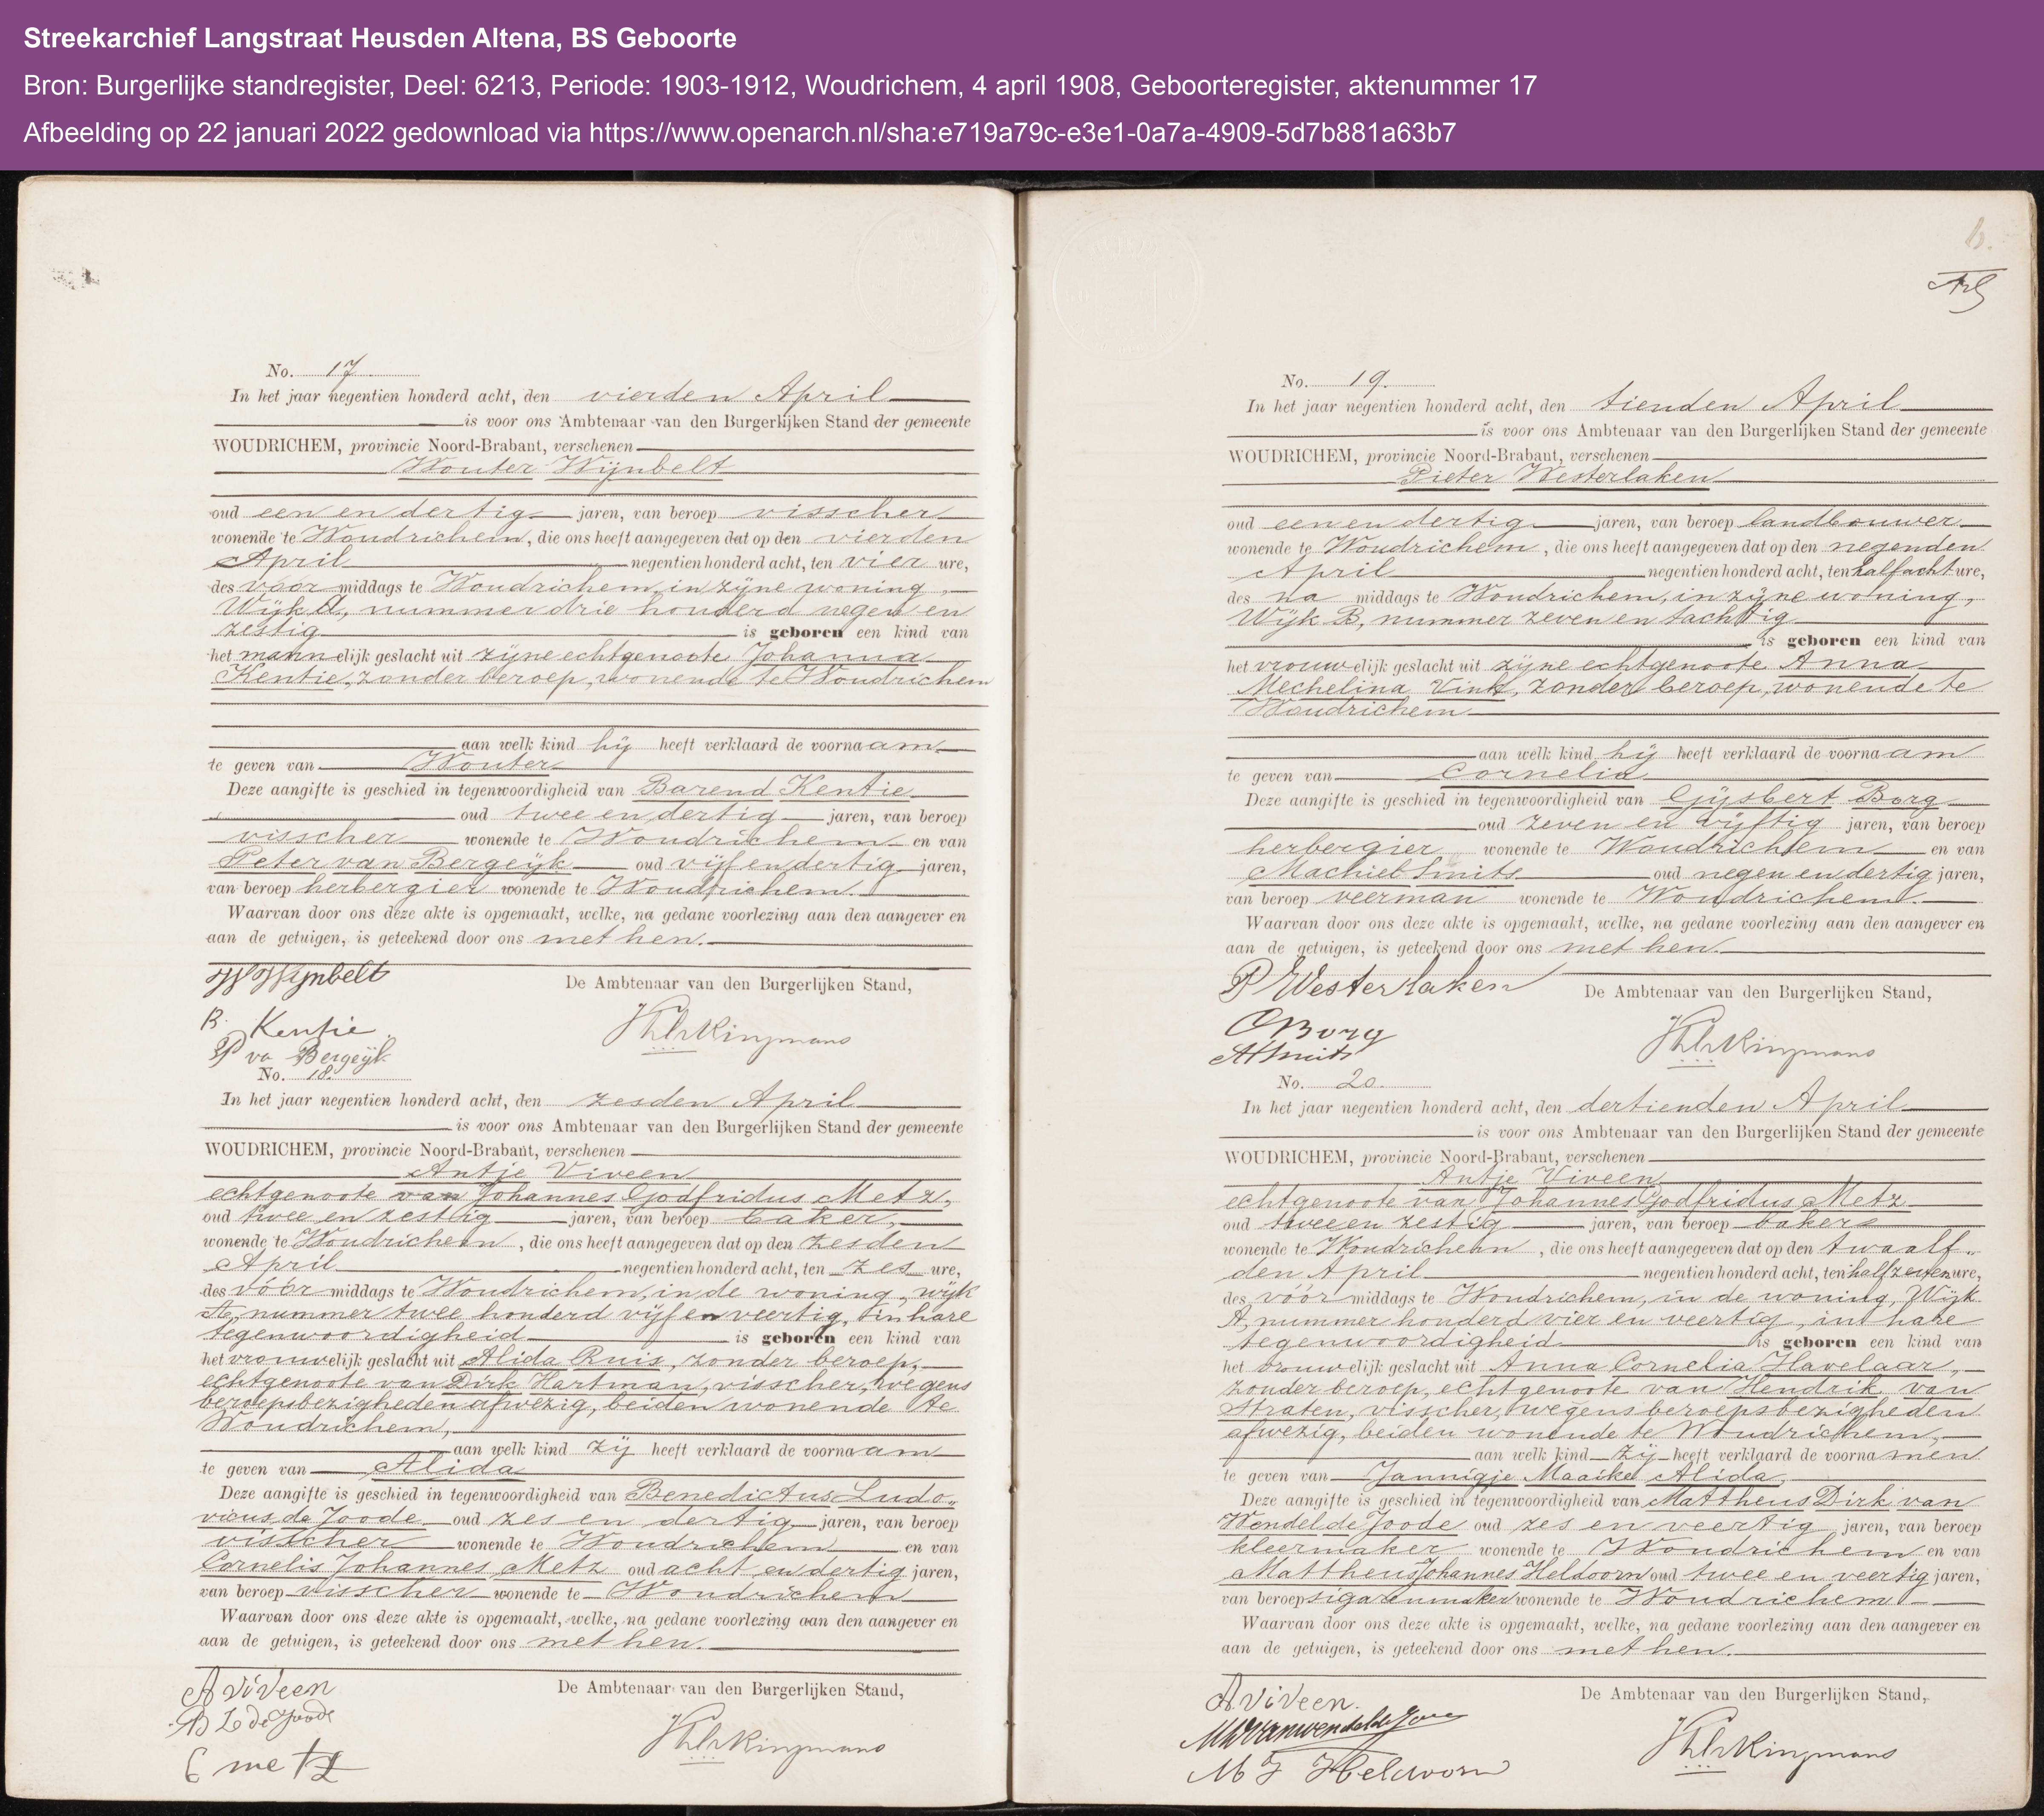 Streekarchief Langstraat Heusden Altena, BS Geboorte
Bron: Burgerlijke standregister, Deel: 6213, Periode: 1903-1912, Woudrichem, 4 april 1908, Geboorteregister, aktenummer 17
Afbeelding op 22 januari 2022 gedownload via https://www.openarch.nl/sha:e719a79c-e3e1-0a7a-4909-5d7b881a63b7
No. 17
In het jaar negentien honderd acht, den vierden April
is voor ons Ambtenaar van den Burgerlijken Stand der gemeente
WOUDRICHEM, provincie Noord-Brabant, verschenen
Wouter Wijnbelt
oud een en dertig jaren, van beroep visscher
wonende te Woudrichem, die ons heeft aangegeven dat op den vierden
April negentien honderd acht, ten vier ure,
des vóór middags te Woudrichem, in zijne woning,
Wijk A, nummer drie honderd negen en
zestig is geboren een kind van
het mannelijk geslacht uit zijne echtgenoote Johanna
Kentie, zonder beroep, wonende te Woudrichem
aan welk kind hij heeft verklaard de voornaam
te geven van Wouter
Deze aangifte is geschied in tegenwoordigheid van Barend Kentie
oud twee en dertig jaren, van beroep
visscher wonende te Woudrichem en van
Peter van Bergeijk oud vijf en dertig jaren,
van beroep herbergier wonende te Woudrichem.
Waarvan door ons deze akte is opgemaakt, welke, na gedane voorlezing aan den aangever en
aan de getuigen, is geteekend door ons met hen.
W Wijnbelt
De Ambtenaar van den Burgerlijken Stand,
B. Kentie
P va Bergeijk
No. 18.
In het jaar negentien honderd acht, den zesden April
is voor ons Ambtenaar van den Burgerlijken Stand der gemeente
WOUDRICHEM, provincie Noord-Brabant, verschenen
Antje Viveen
echtgenoote van Johannes Godfridus Metz,
oud twee en zestig jaren, van beroep baker,
wonende te Woudrichem, die ons heeft aangegeven dat op den zesden
April negentien honderd acht, ten zes ure,
des vóór middags te Woudrichem, in de woning, wijk
A, nummer twee honderd vijf en veertig, in hare
tegenwoordigheid is geboren een kind van
het vrouwelijk geslacht uit Alida Ruis, zonder beroep,
echtgenoote van Dirk Hartman, visscher, wegens
beroepsbezigheden afwezig, beiden wonende te
Woudrichem,
aan welk kind zij heeft verklaard de voornaam
te geven van Alida
Deze aangifte is geschied in tegenwoordigheid van Benedictus Ludo„
vicus de Joode oud zes en dertig jaren, van beroep
visscher wonende te Woudrichem en van
Cornelis Johannes Metz oud acht en dertig jaren,
van beroep visscher wonende te Woudrichem
Waarvan door ons deze akte is opgemaakt, welke, na gedane voorlezing aan den aangever en
aan de getuigen, is geteekend door ons met hen.
A viveen
De Ambtenaar van den Burgerlijken Stand,
B L de Joode
C metz
No. 19.
In het jaar negentien honderd acht, den tienden April
is voor ons Ambtenaar van den Burgerlijken Stand der gemeente
WOUDRICHEM, provincie Noord-Brabant, verschenen
Pieter Westerlaken
oud een en dertig jaren, van beroep landbouwer
wonende te Woudrichem, die ons heeft aangegeven dat op den negenden
April negentien honderd acht, ten half acht ure,
des na middags te Woudrichem, in zijne woning,
Wijk B, nummer zeven en tachtig
is geboren een kind van
het vrouwelijk geslacht uit zijne echtgenoote Anna
Mechelina Vink, zonder beroep, wonende te
Woudrichem
aan welk kind hij heeft verklaard de voornaam
te geven van Cornelia
Deze aangifte is geschied in tegenwoordigheid van Gijsbert Borg
oud zeven en vijftig jaren, van beroep
herbergier wonende te Woudrichem en van
Machiel Smits oud negen en dertig jaren,
van beroep veerman wonende te Woudrichem.
Waarvan door ons deze akte is opgemaakt, welke, na gedane voorlezing aan den aangever en
aan de getuigen, is geteekend door ons met hen.
P Westerlaken
De Ambtenaar van den Burgerlijken Stand,
G Borg
M Smits
No. 20.
In het jaar negentien honderd acht, den dertienden April
is voor ons Ambtenaar van den Burgerlijken Stand der gemeente
WOUDRICHEM, provincie Noord-Brabant, verschenen
Antje Viveen
echtgenoote van Johannes Godfridus Metz
oud twee en zestig jaren, van beroep baker
wonende te Woudrichem, die ons heeft aangegeven dat op den twaalf„
den April negentien honderd acht, ten half zeven ure,
des vóór middags te Woudrichem, in de woning, Wijk
A, nummer honderd vier en veertig, in hare
tegenwoordigheid is geboren een kind van
het vrouwelijk geslacht uit Anna Cornelia Havelaar,
zonder beroep, echtgenoote van Hendrik van
Straten, visscher, wegens beroepsbezigheden
afwezig, beiden wonende te Woudrichem,
aan welk kind zij heeft verklaard de voornamen
te geven van Jannigje Maaike Alida,
Deze aangifte is geschied in tegenwoordigheid van Mattheus Dirk van
Wendel de Joode oud zes en veertig jaren, van beroep
kleermaker wonende te Woudrichem en van
Mattheus Johannes Heldoorn oud twee en veertig jaren,
van beroep sigarenmaker wonende te Woudrichem
Waarvan door ons deze akte is opgemaakt, welke, na gedane voorlezing aan den aangever en
aan de getuigen, is geteekend door ons met hen.
A viveen.
De Ambtenaar van den Burgerlijken Stand,
M J Heldoorn